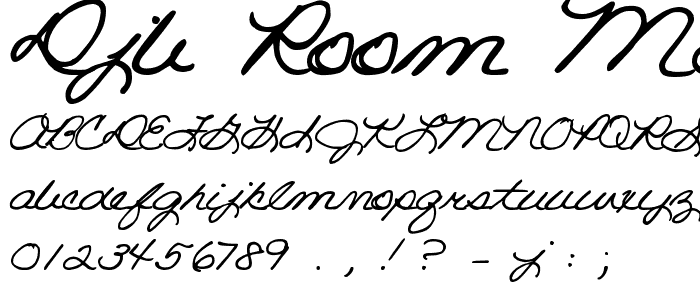 Djb Room Mo
ABCDEFGHIJKLMNOPQRS
abcdefghijklmnopqrstuvwxyz
0123456789 . , ! ? - j : ;